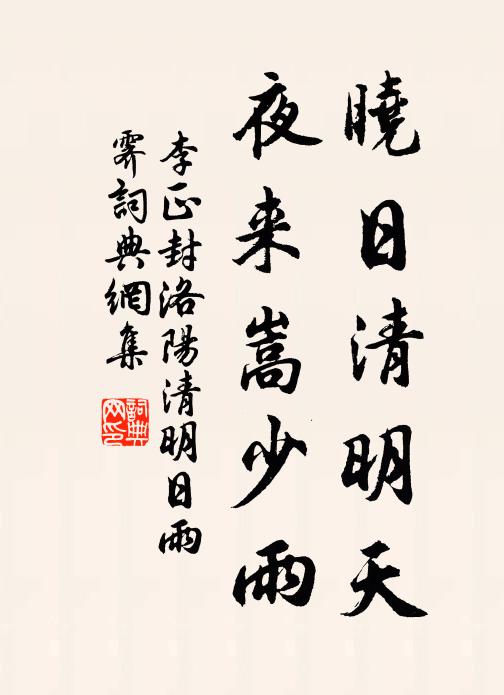 曉日清明天
夜来嵩少雨
李正封洛陽清明日雨
霽詞典網集
詞典
网印